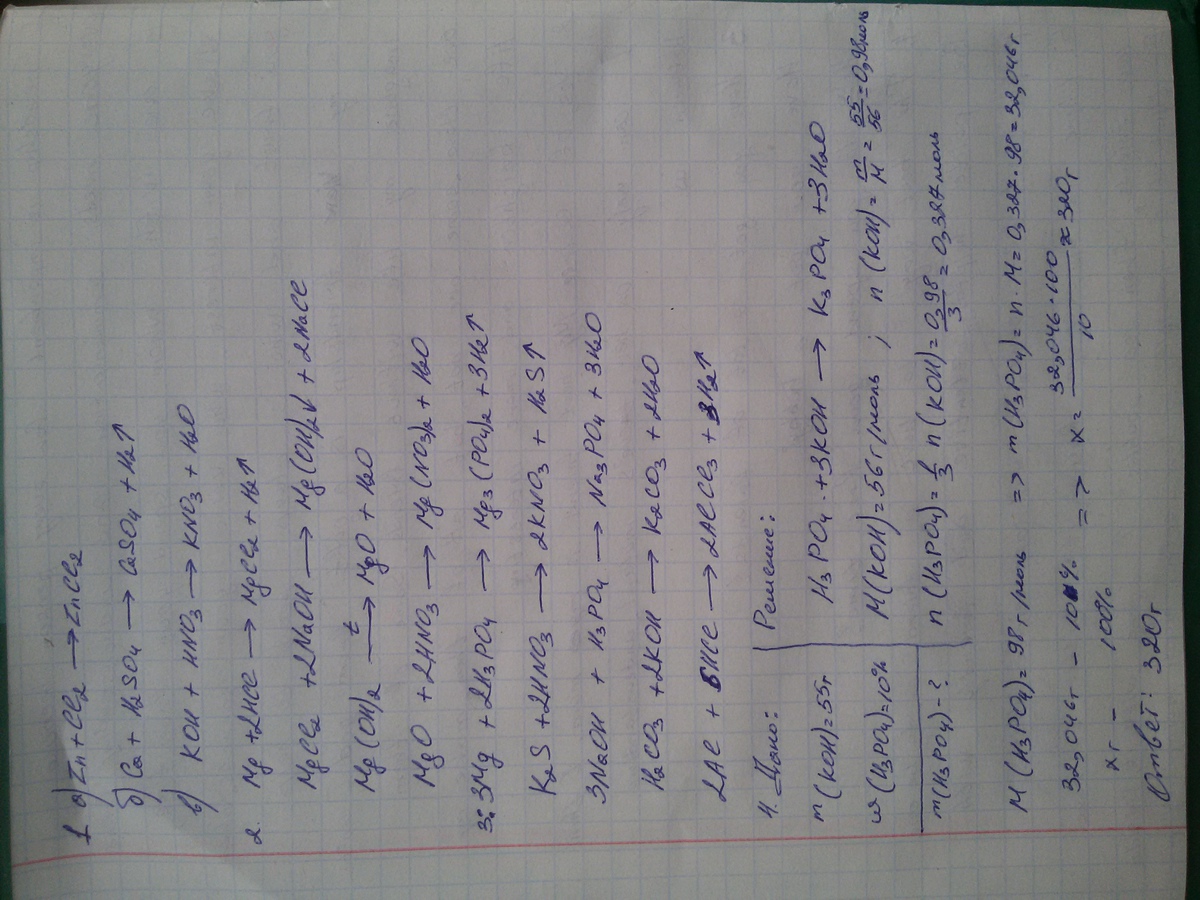 1. а) Zn + Cl₂ → ZnCl₂
б) Ca + H₂SO₄ → CaSO₄ + H₂↑
в) KOH + HNO₃ → KNO₃ + H₂O
2. Mg + 2HCl → MgCl₂ + H₂↑
MgCl₂ + 2NaOH → Mg(OH)₂↓ + 2NaCl
Mg(OH)₂ →ᵗ MgO + H₂O
MgO + 2HNO₃ → Mg(NO₃)₂ + H₂O
3. 3Mg + 2H₃PO₄ → Mg₃(PO₄)₂ + 3H₂↑
K₂S + 2HNO₃ → 2KNO₃ + H₂S↑
3NaOH + H₃PO₄ → Na₃PO₄ + 3H₂O
H₂CO₃ + 2KOH → K₂CO₃ + 2H₂O
2Al + 6HCl → 2AlCl₃ + 3H₂↑
4. Дано: Решение:
m(KOH)=55г H₃PO₄ + 3KOH → K₃PO₄ + 3H₂O
w(H₃PO₄)=10% M(KOH)=56 г/моль ; n(KOH) = m/M = 55/56 = 0,98моль
m(H₃PO₄) - ? n(H₃PO₄) = 1/3 n(KOH) = 0,98/3 = 0,327моль
M(H₃PO₄) = 98 г/моль => m(H₃PO₄) = n·M = 0,327·98 = 32,046г
32,046г - 10% => x = 32,046·100/10 ≈ 320г
xг - 100%
Ответ: 320г